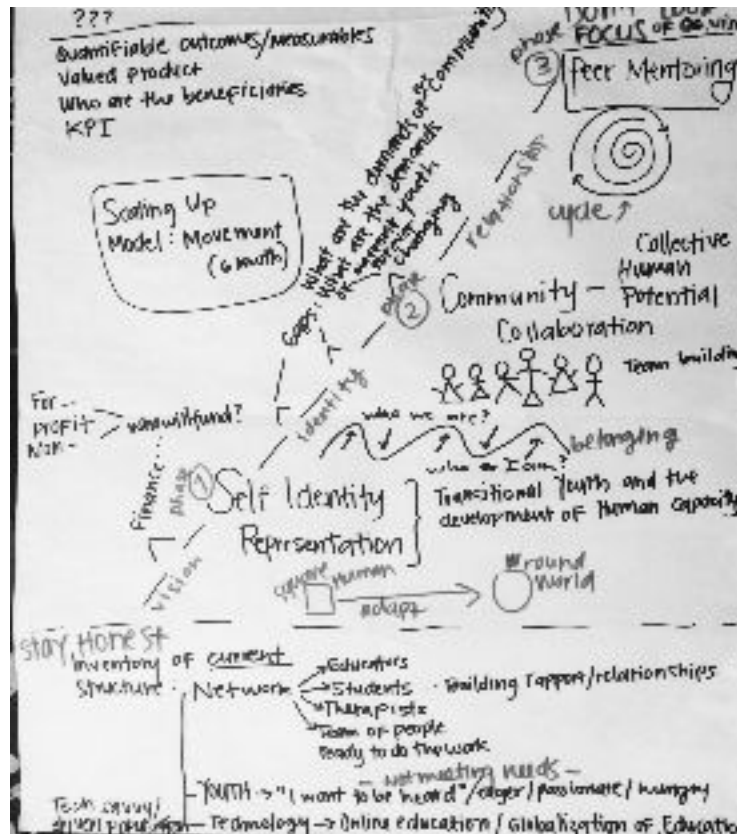 ???
Quantifiable outcomes/measurables
Valued product
Who are the beneficiaries
KPI
phase
FOCUS OF
3
Peer Mentoring
cycle
Scaling Up
Model: Movement
(6 month)
Gaps:
What are the demands of community
What are the demands
of youth
changing
relationship
phase
2
Community – Collective
Human
Potential
Collaboration
Team building
identity
For--
profit
Non--
fund?
Finance...
who we are?
who am I am?
belonging
phase
1
Self Identity
Representation
Transitional Youth and the
development of Human Capacity
vision
square Human
adapt
round
World
Stay, Honest
Inventory of current
Structure:
Network
Educators
Students - Building rapport/relationships
Therapists
Team of people
ready to do the work
- Not meeting needs -
Youth → "I want to be heard"/eager/passionate/hungry
Tech savvy/
driven population – Technology → Online education / Globalization of Education